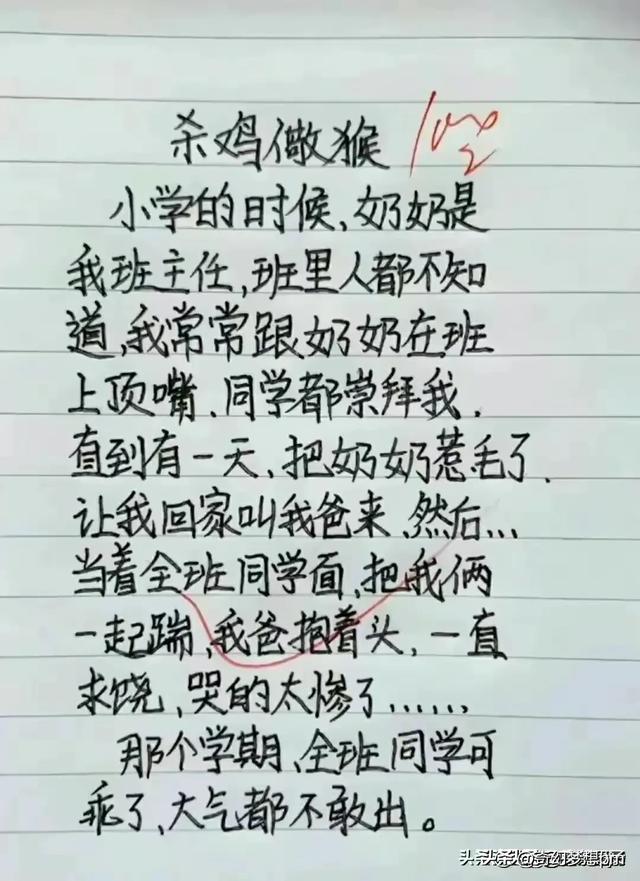 杀鸡儆猴 100
小学的时候,奶奶是
我班主任,班里人都不知
道,我常常跟奶奶在班
上顶嘴、同学都崇拜我.
直到有一天,把奶奶惹毛了.
让我回家叫我爸来、然后...
当着全班同学面,把我俩
一起踹,我爸抱着头,一直
求饶,哭的太惨了......
那个学期、全班同学可
乖了、大气都不敢出。